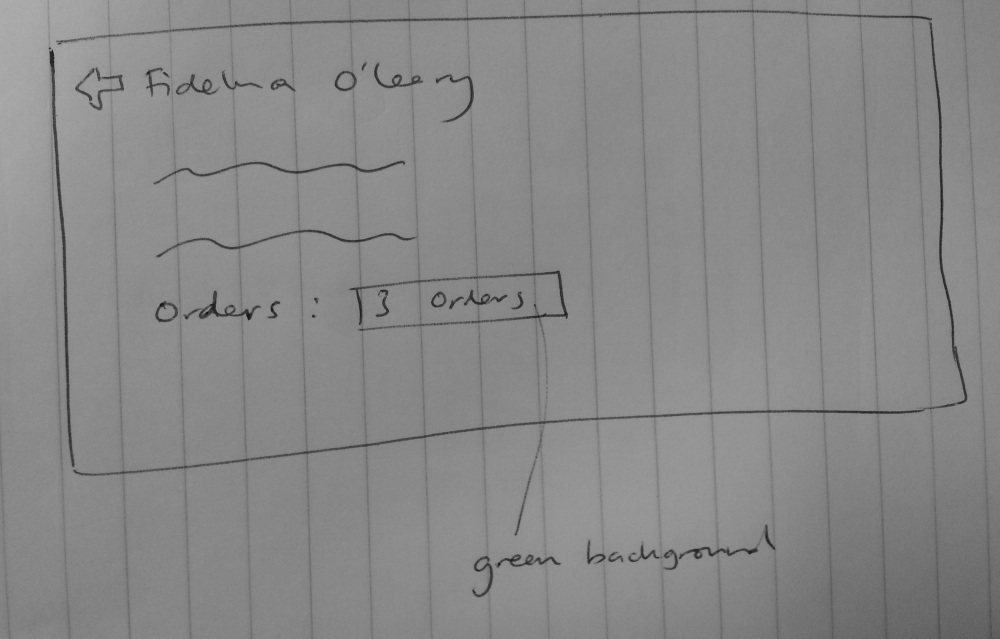 Fidelma O'Leary
Orders : 3 orders
green background